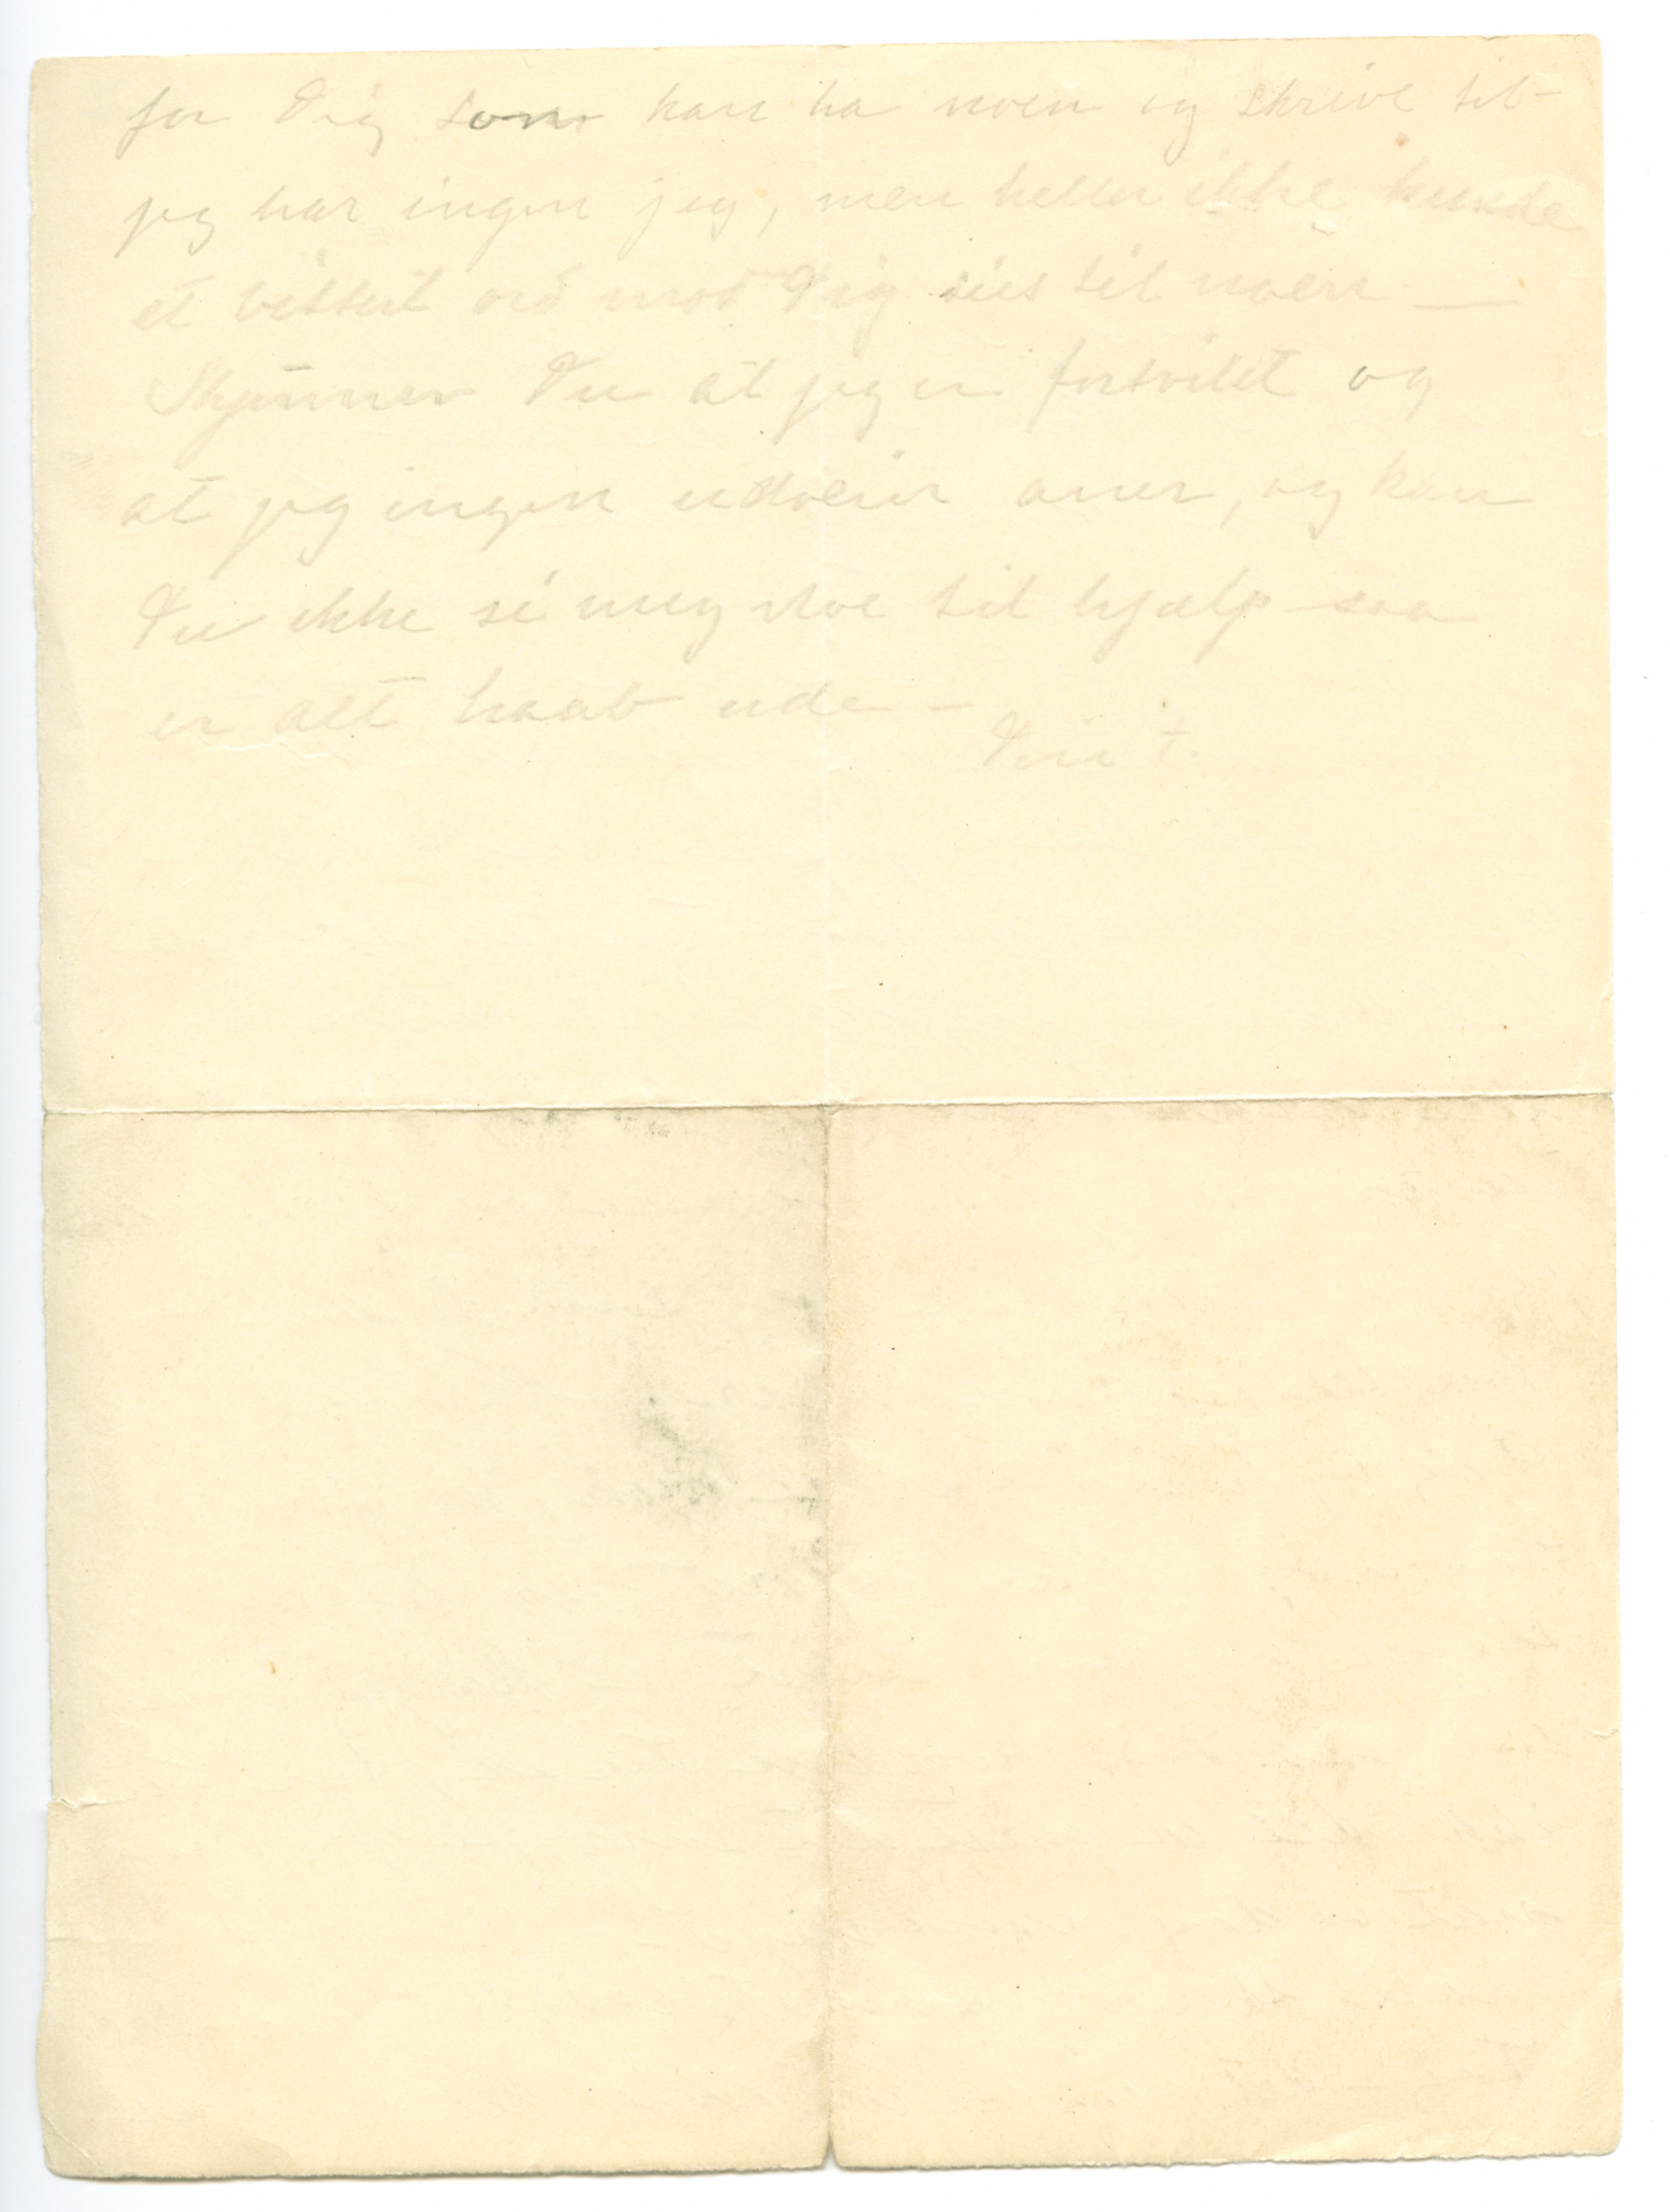 for Dig som kan ha noen og skrive til –
jeg har ingen jeg, men heller ikke kunde
et bittert ord mod Dig sies til noen —
Skjønner Du at jeg er fortvilet og
at jeg ingen udveier aner, og kan
Du ikke si meg noe til hjælp saa
er alt haab ude –
Din t.